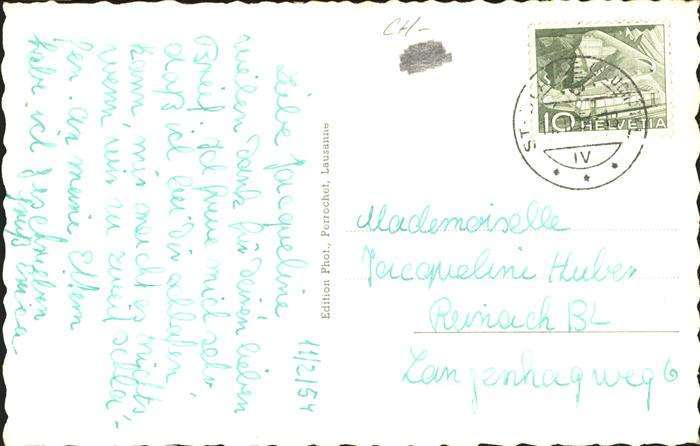 CH-
10 HELVETIA
ST.
IV
Edition Phot., Perrochet, Lausanne
11/2/54
Liebe Jacqueline
vielen Dank für Deinen lieben
Brief. Ich freue mich sehr,
daß ich bei Dir
kann, mir macht es nichts,
wenn wir zu zweit schla-
fen. An meine Eltern
habe ich geschrieben
Gruß
Mademoiselle
Jacqueline Huber
Reinach BL
Langenhagweg 6